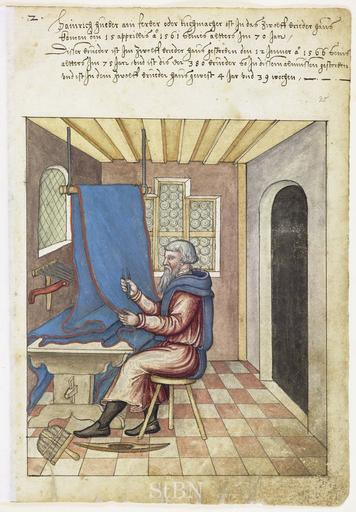 2.
Hainrich Zneder ain ferber oder tuchmacher ist in das Zwelff brieder haus
komen den 15 apprillis a 1561 seines alters im 70 Jar,
Diser brieder ist im Zwelff brieder haus gestorben den 12 Jenner a 1566 seines
alters im 75 Jar, und ist dis der 380 brieder so in disem almussen gestorben
und ist in dem Zwelff brieder haus gewest 4 Jar und 39 wochen,
StBN